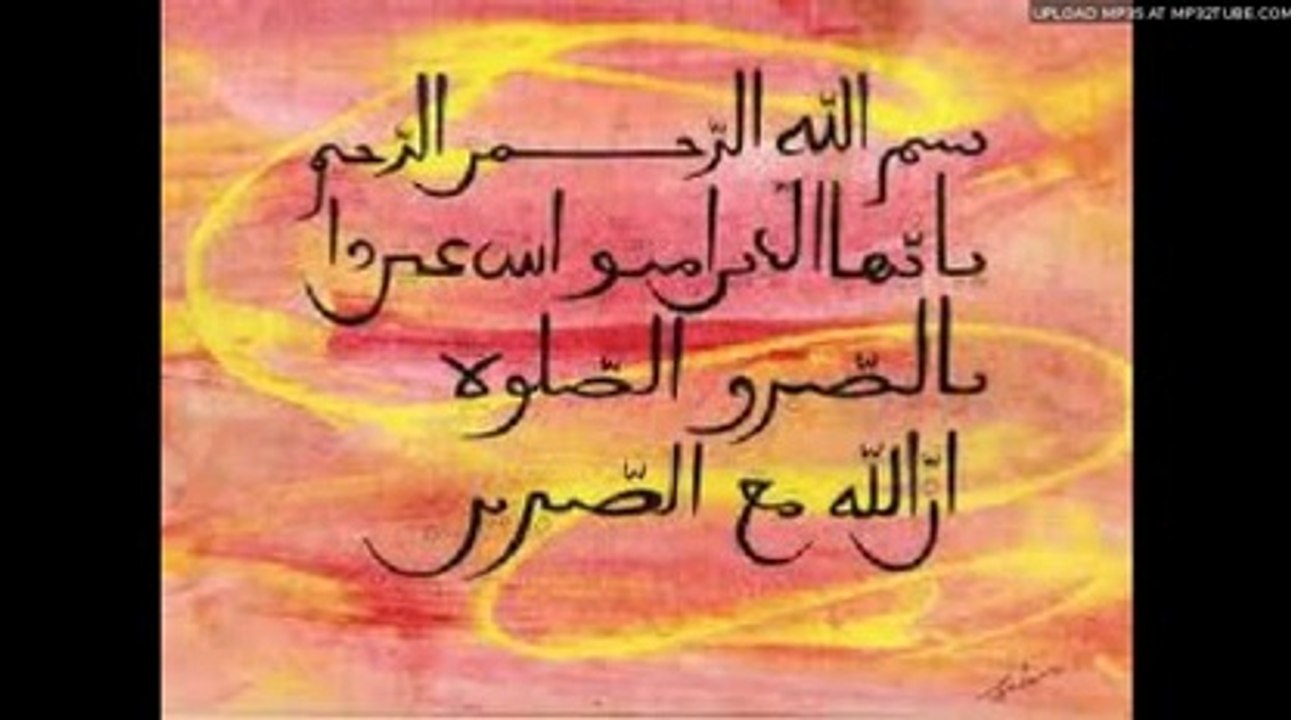 UPLOAD MP3S AT MP32TUBE.COM
بسم الله الرّحمن الرّحيم
يا يّها الّذين امنوا استعينوا
بالصّبر و الصّلوة
انّ الله مع الصّبرين